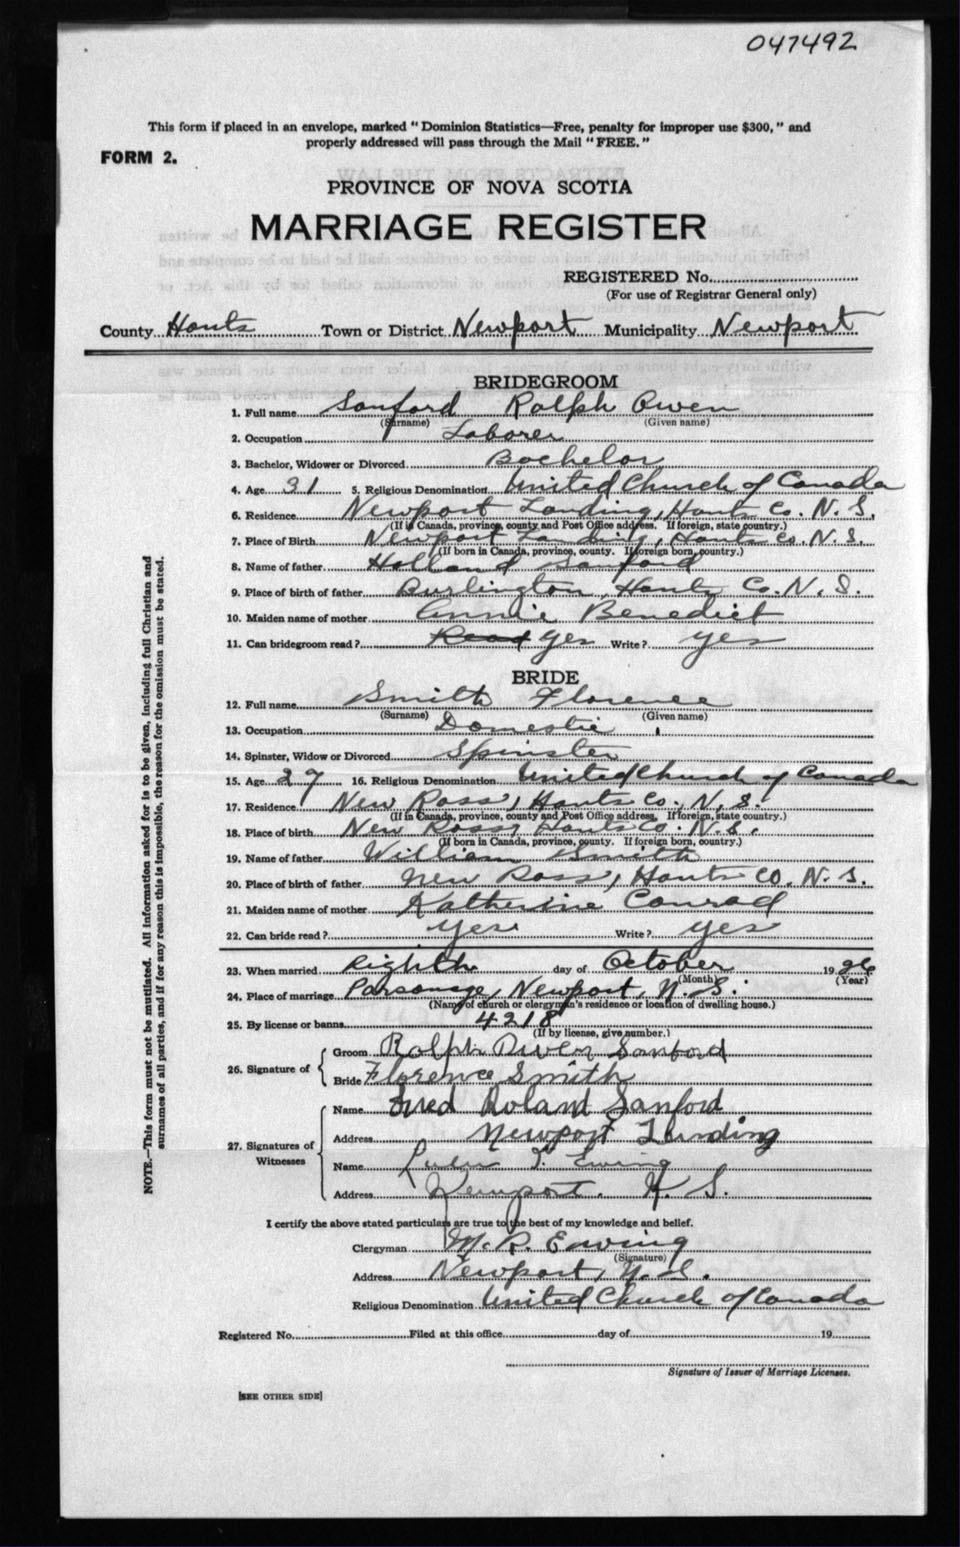 047492
This form if placed in an envelope, marked "Dominion Statistics—Free, penalty for improper use $300," and
properly addressed will pass through the Mail "FREE."
FORM 2.
PROVINCE OF NOVA SCOTIA
MARRIAGE REGISTER
REGISTERED No.
(For use of Registrar General only)
County Hants Town or District Newport Municipality Newport
BRIDEGROOM
1. Full name Sanford Ralph Owen
(Surname) (Given name)
2. Occupation Laborer
3. Bachelor, Widower or Divorced Bachelor
4. Age 31 5. Religious Denomination United Church of Canada
6. Residence Newport Landing, Hants Co. N.S.
(If in Canada, province, county and Post Office address. If foreign, state country.)
7. Place of Birth Newport Landing, Hants Co. N.S.
(If born in Canada, province, county. If foreign born, country.)
8. Name of father Holland Sanford
9. Place of birth of father Burlington, Hants Co. N.S.
10. Maiden name of mother Annie Benedict
11. Can bridegroom read? Read yes Write? yes
BRIDE
12. Full name Smith Florence
(Surname) (Given name)
13. Occupation Domestic
14. Spinster, Widow or Divorced Spinster
15. Age 27 16. Religious Denomination United Church of Canada
17. Residence New Ross, Hants Co., N.S.
(If in Canada, province, county and Post Office address. If foreign, state country.)
18. Place of birth New Ross, Hants Co. N.S.
(If born in Canada, province, county. If foreign born, country.)
19. Name of father William Smith
20. Place of birth of father New Ross, Hants Co. N.S.
21. Maiden name of mother Katherine Conrad
22. Can bride read? yes Write? yes
23. When married Eighth day of October 1926
(Month) (Year)
24. Place of marriage Parsonage, Newport, N.S.
(Name of church or clergyman's residence or location of dwelling house.)
25. By license or banns 4218
(If by license, give number.)
26. Signature of Groom Ralph Owen Sanford
Bride Florence Smith
27. Signatures of Witnesses Name Fred Roland Sanford
Address Newport Landing
Name Lulu T. Ewing
Address Newport. N.S.
I certify the above stated particulars are true to the best of my knowledge and belief.
Clergyman M. R. Ewing
(Signature)
Address Newport, N.S.
Religious Denomination United Church of Canada
Registered No. Filed at this office day of 19
Signature of Issuer of Marriage Licenses.
[SEE OTHER SIDE]
NOTE.—This form must not be mutilated. All information asked for is to be given, including full Christian and
surnames of all parties, and if for any reason this is impossible, the reason for the omission must be stated.